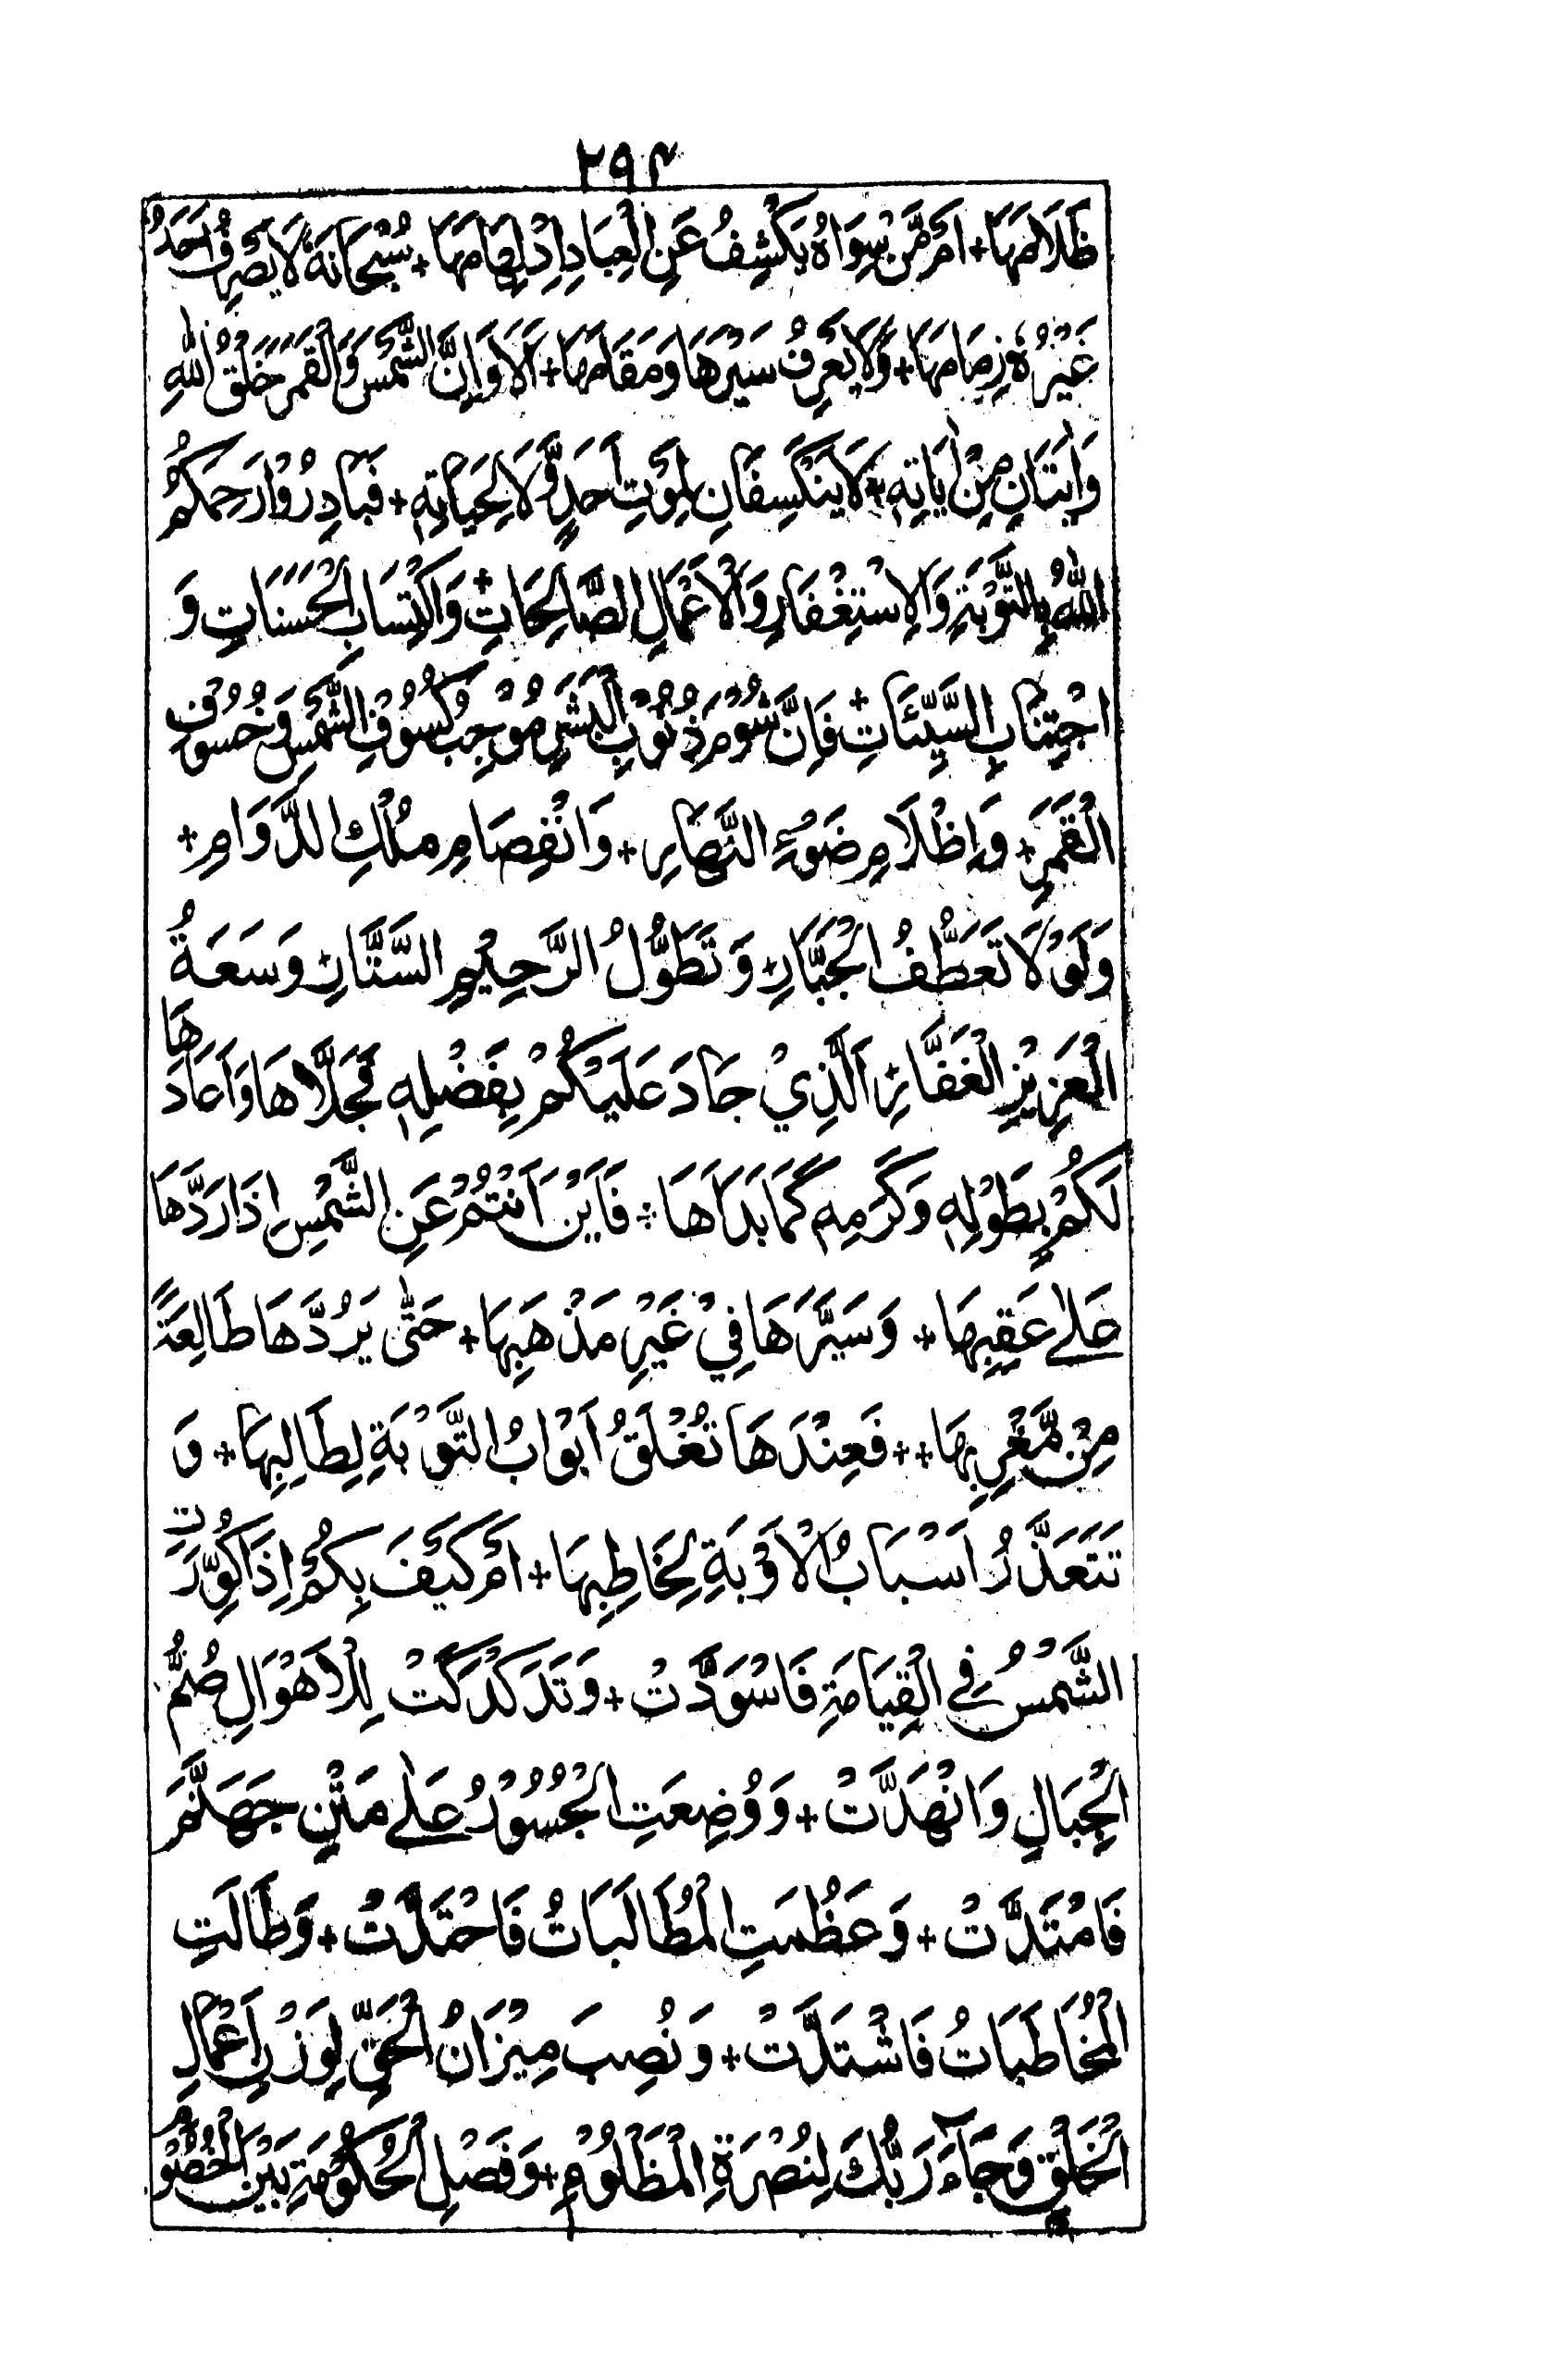 ۲۹۴
ظَلَامَهَا + اَمْ مَّنْ سِوَاهُ يَكْشِفُ عَنِ الْعِبَادِ اِدْلِهْمَامَهَا + سُبْحَانَهُ لَا يَصْرِفُ اَحَدٌ
غَيْرُهُ زِمَامَهَا + وَلَا يَعْرِفُ سَيْرَهَا وَمَقَامَهَا + اَلَا وَاِنَّ الشَّمْسَ وَالْقَمَرَ خَلْقُ اللهِ
وَاٰيَتَانِ مِنْ اٰيَاتِهٖ + لَا يَنْكَسِفَانِ لِمَوْتِ اَحَدٍ وَّلَا لِحَيَاتِهٖ + فَبَادِرُوْا رَحِمَكُمُ
اللهُ بِالتَّوْبَةِ وَالِاسْتِغْفَارِ وَالْاَعْمَالِ الصَّالِحَاتِ + وَاكْتِسَابِ الْحَسَنَاتِ وَ
اجْتِنَابِ السَّيِّئَاتِ + فَاِنَّ شُوْمَ ذُنُوْبِ الْبَشَرِ مُوْجِبُ كُسُوْفِ الشَّمْسِ وَخُسُوْفِ
الْقَمَرِ + وَاِظْلَامِ ضَوْءِ النَّهَارِ + وَانْفِصَامِ مُلْكِ الدَّوَامِ +
وَلَوْ لَا تَعَطُّفُ الْجَبَّارِ + وَتَطَوُّلُ الرَّحِيْمِ السَّتَّارِ + وَسَعَةُ
الْعَزِيْزِ الْغَفَّارِ + اَلَّذِيْ جَادَ عَلَيْكُمْ بِفَضْلِهٖ فَجَلَّاهَا وَاَعَادَهَا
لَكُمْ بِطَوْلِهٖ وَكَرَمِهٖ كَمَا بَدَاَهَا + فَاَيْنَ اَنْتُمْ عَنِ الشَّمْسِ اِذَا رَدَّهَا
عَلٰى عَقِبِهَا + وَسَيَّرَهَا فِيْ غَيْرِ مَذْهَبِهَا + حَتّٰى يَرُدَّهَا طَالِعَةً
مِنْ مَّغْرِبِهَا + + فَعِنْدَهَا تُغْلَقُ اَبْوَابُ التَّوْبَةِ لِطَالِبِهَا + وَ
تَتَعَذَّرُ اَسْبَابُ الْاَوْبَةِ لِخَاطِبِهَا + اَمْ كَيْفَ بِكُمْ اِذَا كُوِّرَتِ
الشَّمْسُ فِي الْقِيَامَةِ فَاسْوَدَّتْ + وَتَدَكْدَكَتْ لِلْاَهْوَالِ صُمُّ
الْجِبَالِ وَانْهَدَّتْ + وَوُضِعَتِ الْجُسُوْرُ عَلٰى مَتْنِ جَهَنَّمَ
فَامْتَدَّتْ + وَعَظُمَتِ الْمُطَالَبَاتُ فَاحْتَدَّتْ + وَطَالَتِ
الْمُخَاطَبَاتُ فَاشْتَدَّتْ + وَنُصِبَ مِيْزَانُ الْحَقِّ لِوَزْنِ اَعْمَالِ
الْخَلْقِ وَجَآءَ رَبُّكَ لِنُصْرَةِ الْمَظْلُوْمِ + وَفَصْلِ الْحُكُوْمَةِ بَيْنَ الْخُصُوْمِ